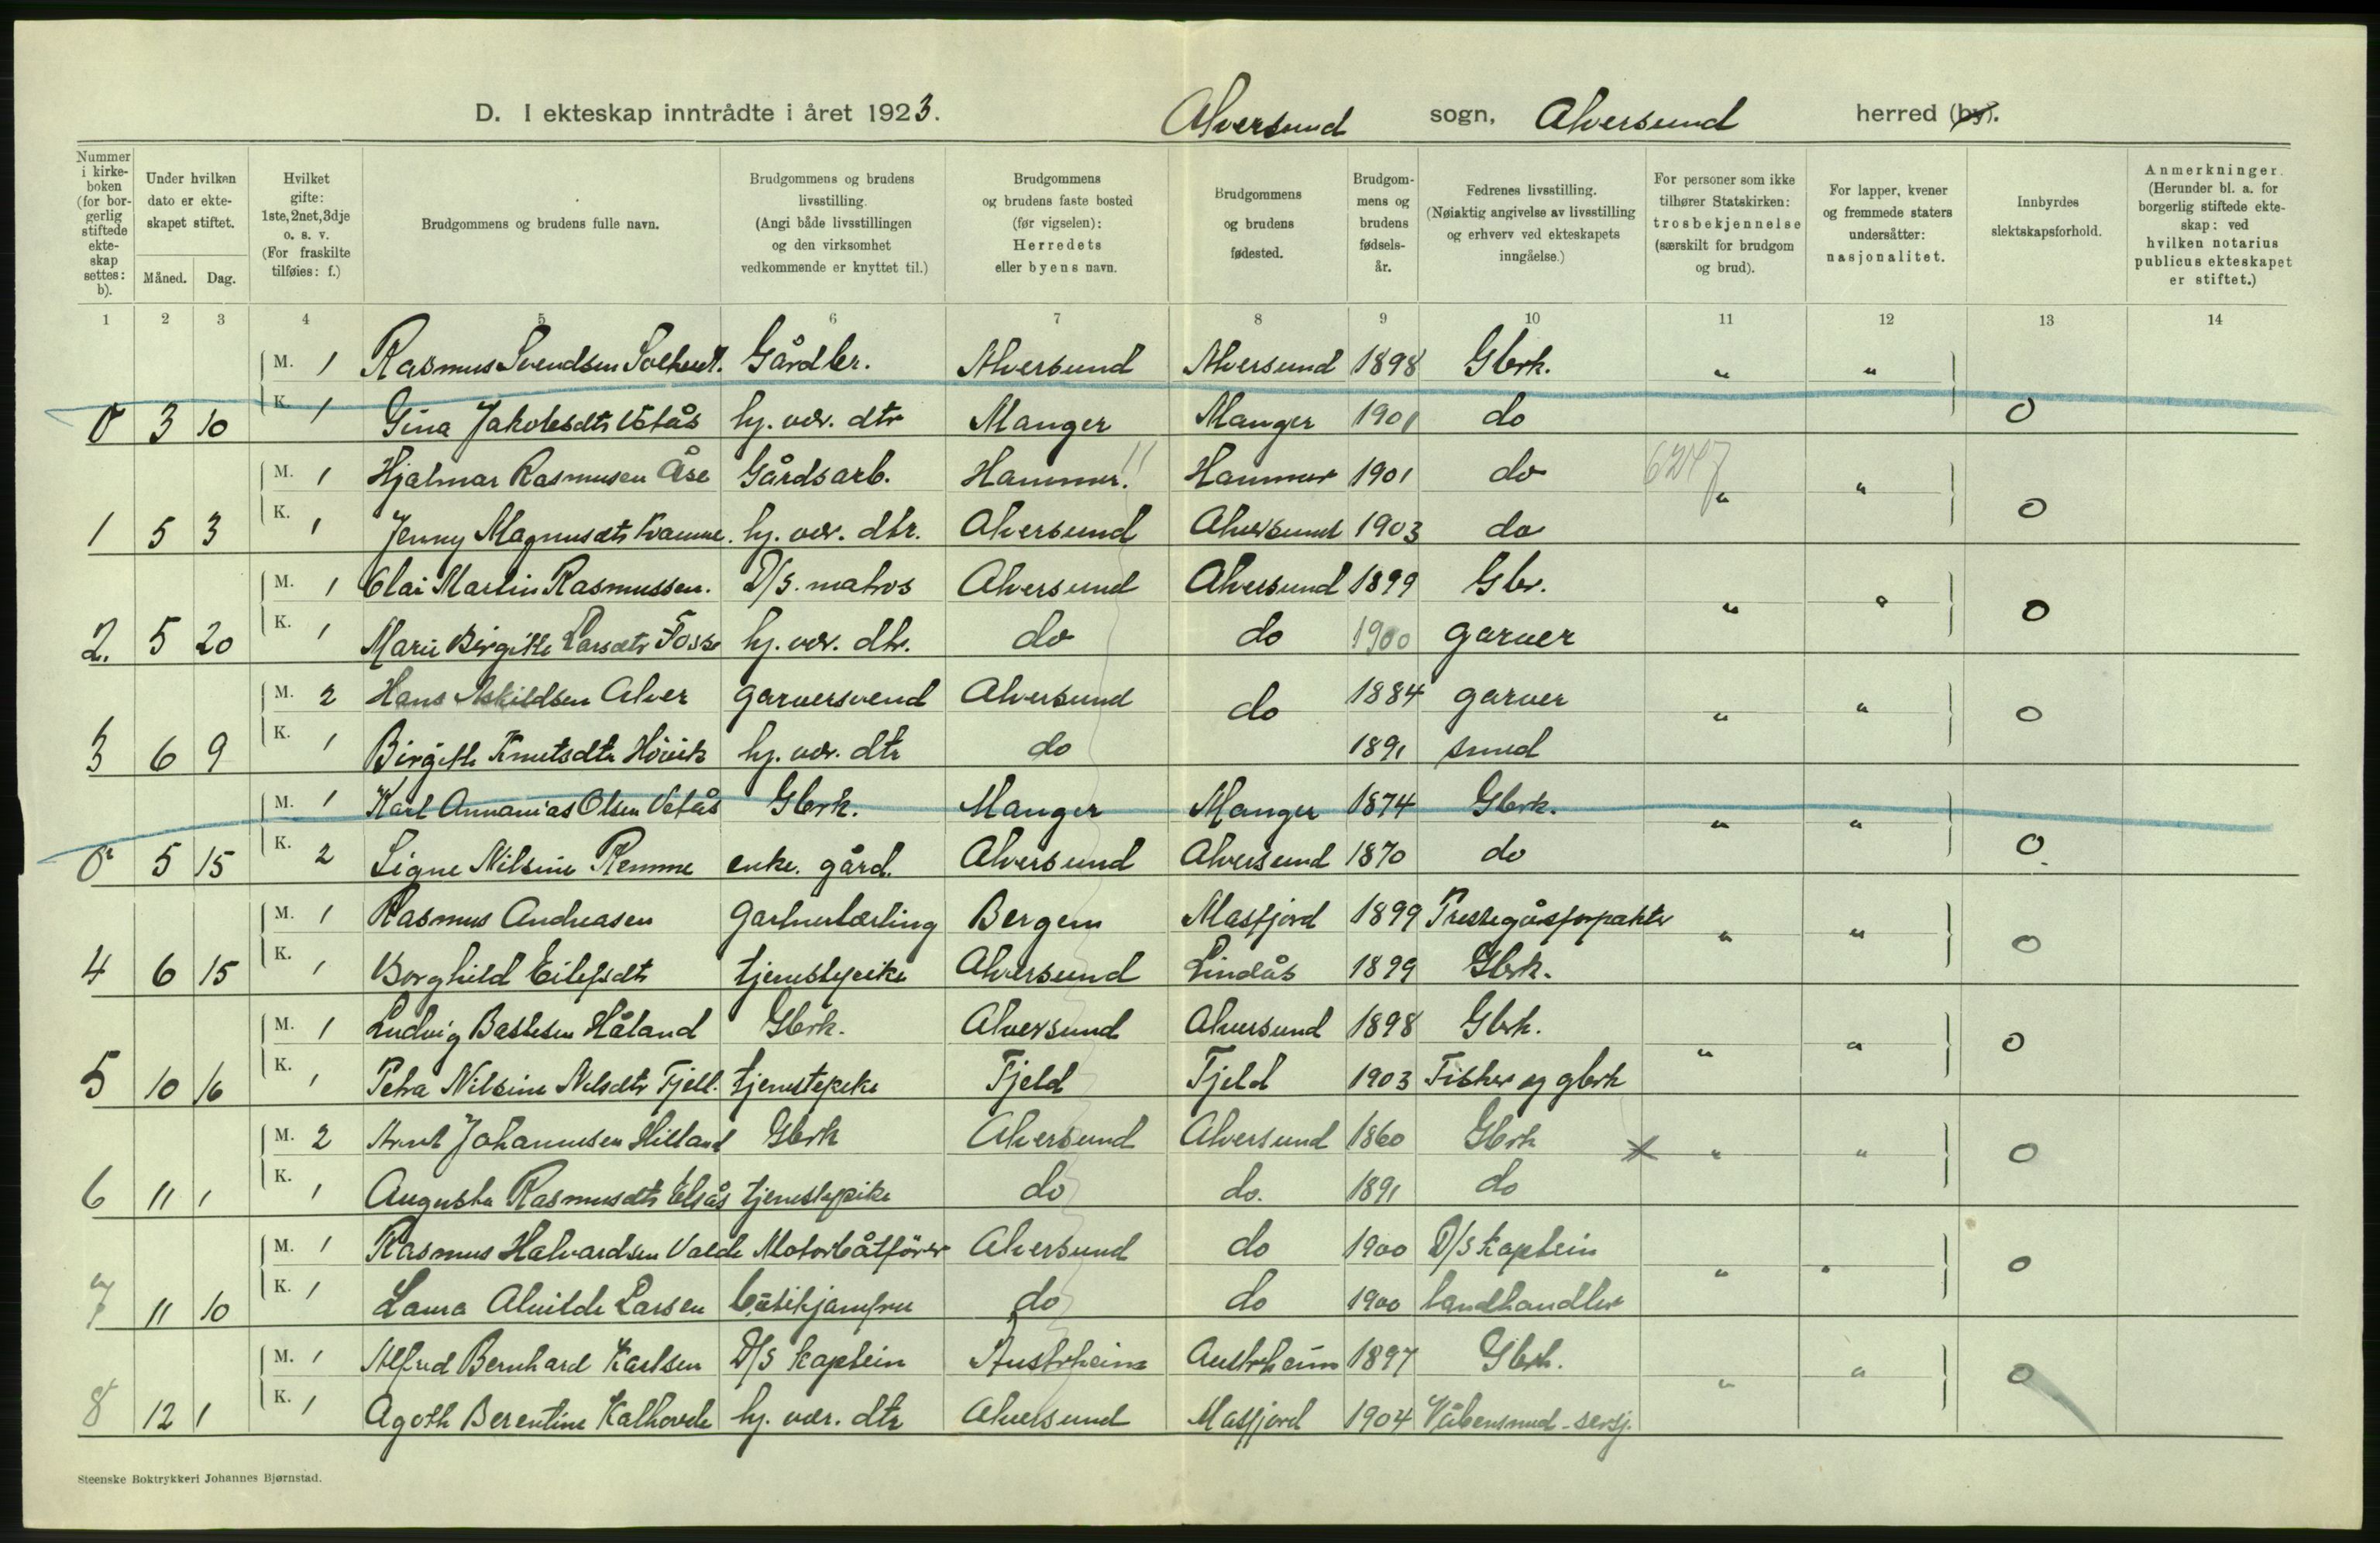 D. I ekteskap inntrådte i året 1923. Alversund sogn, Alversund herred (by).
Nummer i kirkeboken (for borgerlig stiftede ekteskap settes: b).
Under hvilken dato er ekteskapet stiftet.
Måned. Dag.
Hvilket gifte: 1ste, 2net, 3dje o. s. v. (For fraskilte tilføies: f.)
Brudgommens og brudens fulle navn.
Brudgommens og brudens livsstilling. (Angi både livsstillingen og den virksomhet vedkommende er knyttet til.)
Brudgommens og brudens faste bosted (før vigselen): Herredets eller byens navn.
Brudgommens og brudens fødested.
Brudgommens og brudens fødselsår.
Fedrenes livsstilling. (Nøiaktig angivelse av livsstilling og erhverv ved ekteskapets inngåelse.)
For personer som ikke tilhører Statskirken: trosbekjennelse (særskilt for brudgom og brud).
For lapper, kvener og fremmede staters undersåtter: nasjonalitet.
Innbyrdes slektskapsforhold.
Anmerkninger. (Herunder bl. a. for borgerlig stiftede ekteskap: ved hvilken notarius publicus ekteskapet er stiftet.)
1 2 3 4 5 6 7 8 9 10 11 12 13 14
M. 1 Rasmus Svendsen Gårdbr. Alversund Alversund 1898 Gbrk. " "
0 3 10 K. 1 Gina Jakobsdtr hj. vær. dtr Manger Manger 1901 do 0
M. 1 Hjalmar Rasmusen Åse Gårdsarb. Hammer. Hammer 1901 do " "
1 5 3 K. 1 Jenny Magnusdtr Kvamme. hj. vær. dtr. Alversund Alversund 1903 do 0
M. 1 Olai Martin Rasmussen. D/S. matros Alversund Alversund 1899 Gbr. " "
2. 5 20 K. 1 Marie Birgitte Larsdtr Fosse hj. vær. dtr. do do 1900 garver 0
M. 2 Hans Askildsen Alver garversvend Alversund do 1884 garver " "
3 6 9 K. 1 Birgitte Knutsdtr hj. vær. dtr do 1891 smed 0
M. 1 Karl Annanias Olsen Vetås Gbrk. Manger Manger 1874 Gbrk. " "
0 5 15 K. 2 Signe Nilsine Remme enke. gård. Alversund Alversund 1870 do 0
M. 1 Rasmus Andreasen gartnerlærling Bergen Masfjord 1899 Prestegårsforpakter " "
4 6 15 K. 1 Borghild Eilefsdtr tjenestepike Alversund Lindås 1899 Gbrk. 0
M. 1 Ludvig Bastesen Håland Gbrk. Alversund Alversund 1898 Gbrk. " "
5 10 16 K. 1 Petra Nilsine Nilsdtr Fjell. tjenestepike Fjeld Fjeld 1903 Fisker og gbrk 0
M. 2 Arnt Johannesen Hilland Gbrk Alversund Alversund 1860 Gbrk " "
6 11 1 K. 1 Augusta Rasmusdtr tjenestepike do do. 1891 do 0
M. 1 Rasmus Halvardsen Motorbåtfører Alversund do 1900 D/S kaptein " "
7 11 10 K. 1 Laura Alvilde Larsen Butikjomfru do do 1900 landhandler 0
M. 1 Alfred Bernhard Karlsen D/S kaptein Austrheim Austrheim 1897 Gbrk. " "
8 12 1 K. 1 Agoth Berentine Kalhovde hj. vær. dtr Alversund Masfjord 1904 Våbensmed - sersj. 0
Steenske Boktrykkeri Johannes Bjørnstad.